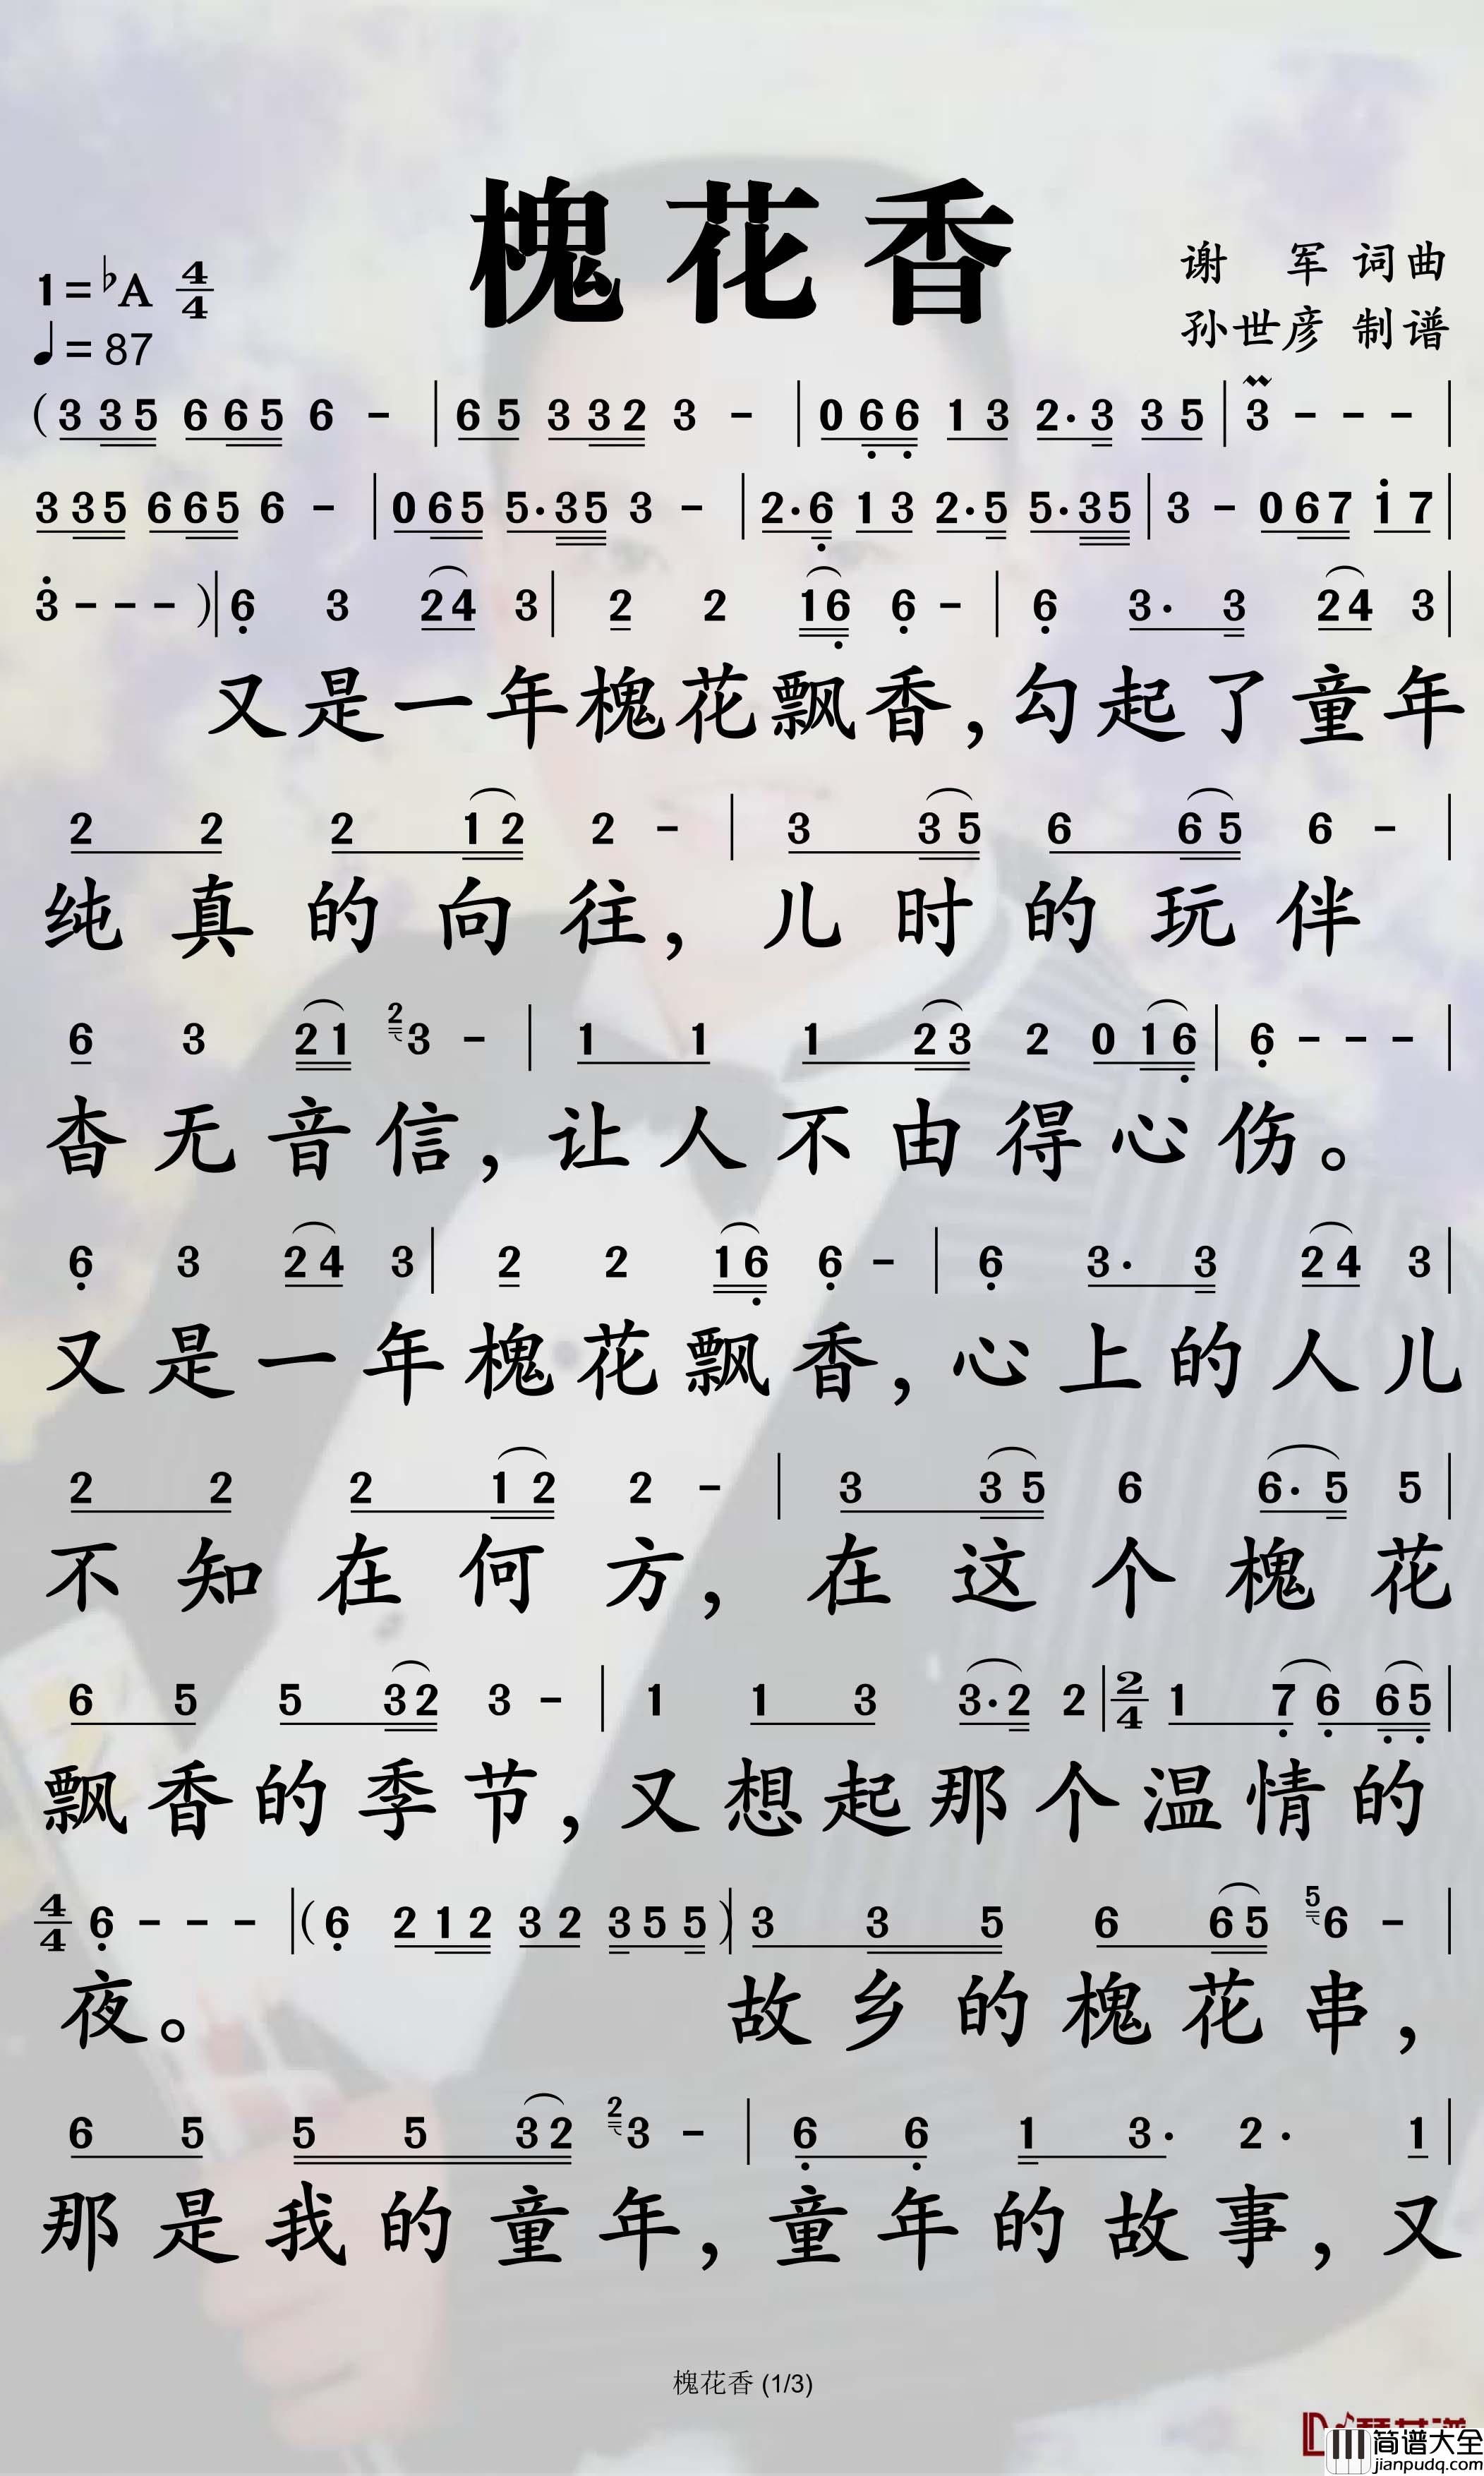 槐花香
1=♭A 4/4
♩=87
谢 军 词曲
孙世彦 制谱
(3 3 5 6 6 5 6 - | 6 5 3 3 2 3 - | 0 6 6 1 3 2· 3 3 5 | 3 - - - |
3 3 5 6 6 5 6 - | 0 6 5 5· 3 5 3 - | 2· 6 1 3 2· 5 5· 3 5 | 3 - 0 6 7 1 7 |
3 - - - )| 6 3 2 4 3 | 2 2 1 6 6 - | 6 3· 3 2 4 3 |
又是一年槐花飘香,勾起了童年
2 2 2 1 2 2 - | 3 3 5 6 6 5 6 - |
纯真的向往,儿时的玩伴
6 3 2 1 2 3 - | 1 1 1 2 3 2 0 1 6 | 6 - - - |
杳无音信,让人不由得心伤。
6 3 2 4 3 | 2 2 1 6 6 - | 6 3· 3 2 4 3 |
又是一年槐花飘香,心上的人儿
2 2 2 1 2 2 - | 3 3 5 6 6· 5 5 |
不知在何方,在这个槐花
6 5 5 3 2 3 - | 1 1 3 3· 2 2 | 2/4 1 7 6 6 5 |
飘香的季节,又想起那个温情的
4/4 6 - - - |( 6 2 1 2 3 2 3 5 5 )| 3 3 5 6 6 5 5 6 - |
夜。 故乡的槐花串,
6 5 5 5 3 2 2 3 - | 6 6 1 3· 2· 1 |
那是我的童年,童年的故事,又
槐花香 (1/3)
简谱大全
jianpudq.com